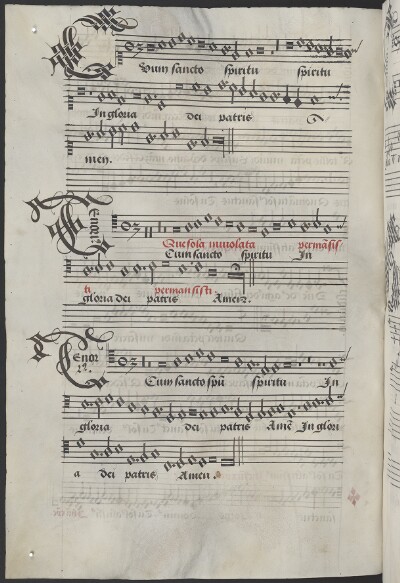 Cum sancto spiritu spiritu
In gloria dei patris
men.
Tenor
Que sola inuiolata permãsis/
Cum sancto spiritu In
ti permansisti
gloria dei patris Amen.
Tenor
Cum sancto spũ spiritu In
gloria dei patris Amẽ In glori
a dei patris Amen.